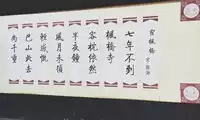 宿楓橋
七年不到
楓橋寺
客枕依然
半夜鐘
風月未須
輕感慨
巴山此去
尚千重